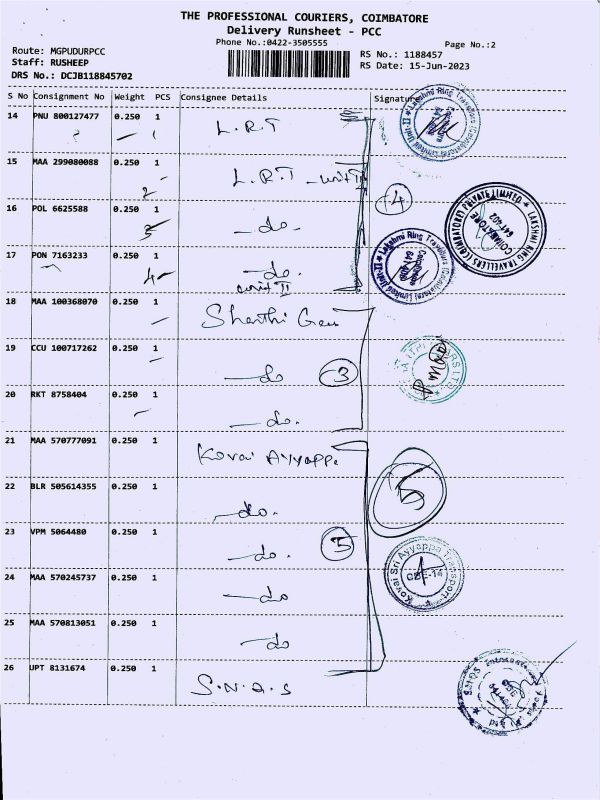 THE PROFESSIONAL COURIERS, COIMBATORE
Delivery Runsheet - PCC
Phone No.:0422-3505555
Page No.:2
Route: MGPUDURPCC
Staff: RUSHEEP
DRS No.: DCJB118845702
RS No.: 1188457
RS Date: 15-Jun-2023
S No Consignment No Weight PCS Consignee Details Signature
14 PNU 800127477 0.250 1 L.R.T
15 MAA 299080088 0.250 1 L.R.T - unit II
2
16 POL 6625588 0.250 1 -do.
4
3
17 PON 7163233 0.250 1 -do.
4
unit II
18 MAA 100368070 0.250 1 Shanthi
19 CCU 100717262 0.250 1 -do
3
20 RKT 8758404 0.250 1 -do.
21 MAA 570777091 0.250 1 Kovai Ayyappa
22 BLR 505614355 0.250 1 -do.
5
23 VPM 5064480 0.250 1 -do.
5
24 MAA 570245737 0.250 1 -do
25 MAA 570813051 0.250 1 -do
26 UPT 8131674 0.250 1 S.N.Q.S
Lakshmi Ring Travellers (Coimbatore) Limited Unit-II
LAKSHMI RING TRAVELLERS (COIMBATORE) PRIVATE LIMITED
COIMBATORE
641 402
Lakshmi Ring Travellers (Coimbatore) Limited Unit-II
Kovai Sri Ayyappa Transport
CBE-14
SNQS